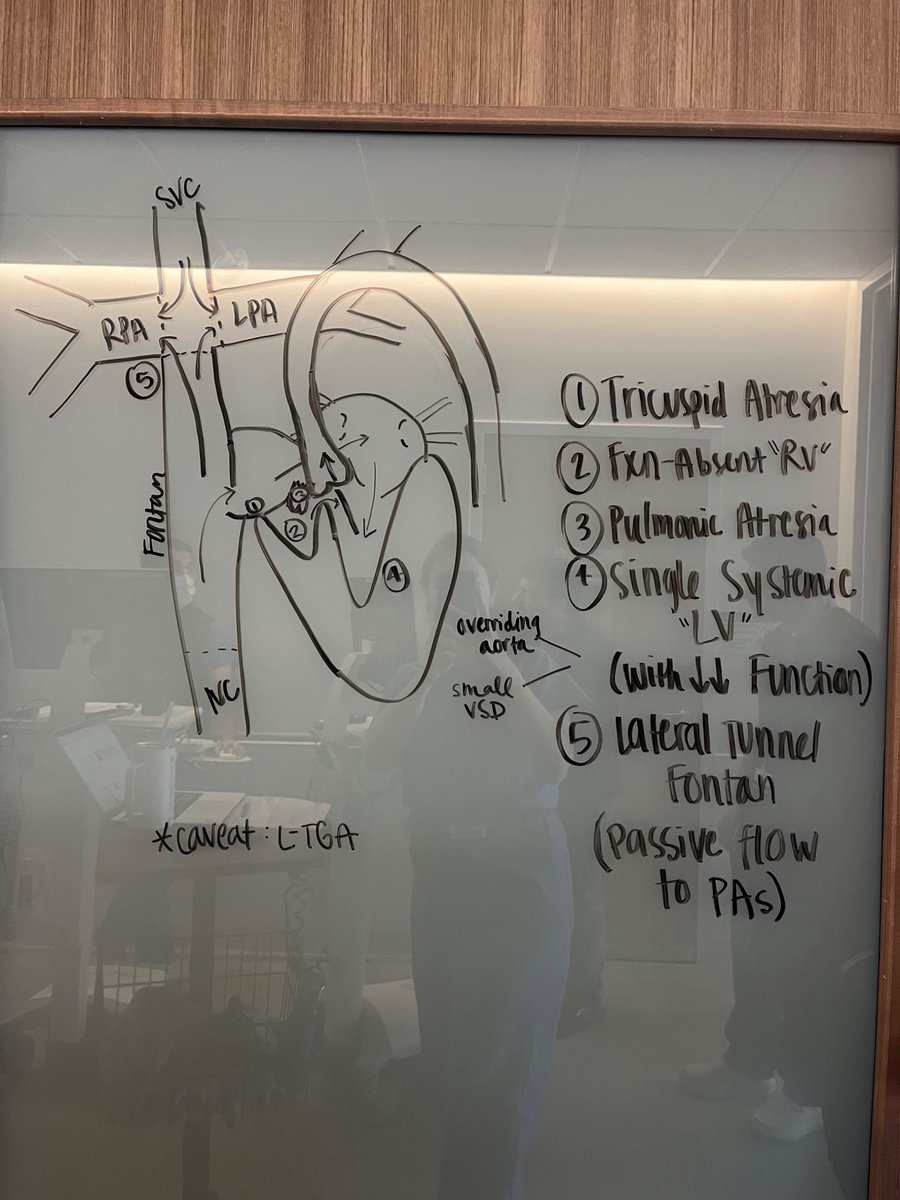 SVC
RPA
LPA
⑤
Fontan
①
③
②
④
IVC
① Tricuspid Atresia
② Fxn-Absent "RV"
③ Pulmonic Atresia
④ Single Systemic
"LV"
overriding
aorta
small
VSD
(with ↓↓ Function)
⑤ Lateral Tunnel
Fontan
(Passive flow
to PAs)
*caveat: L-TGA